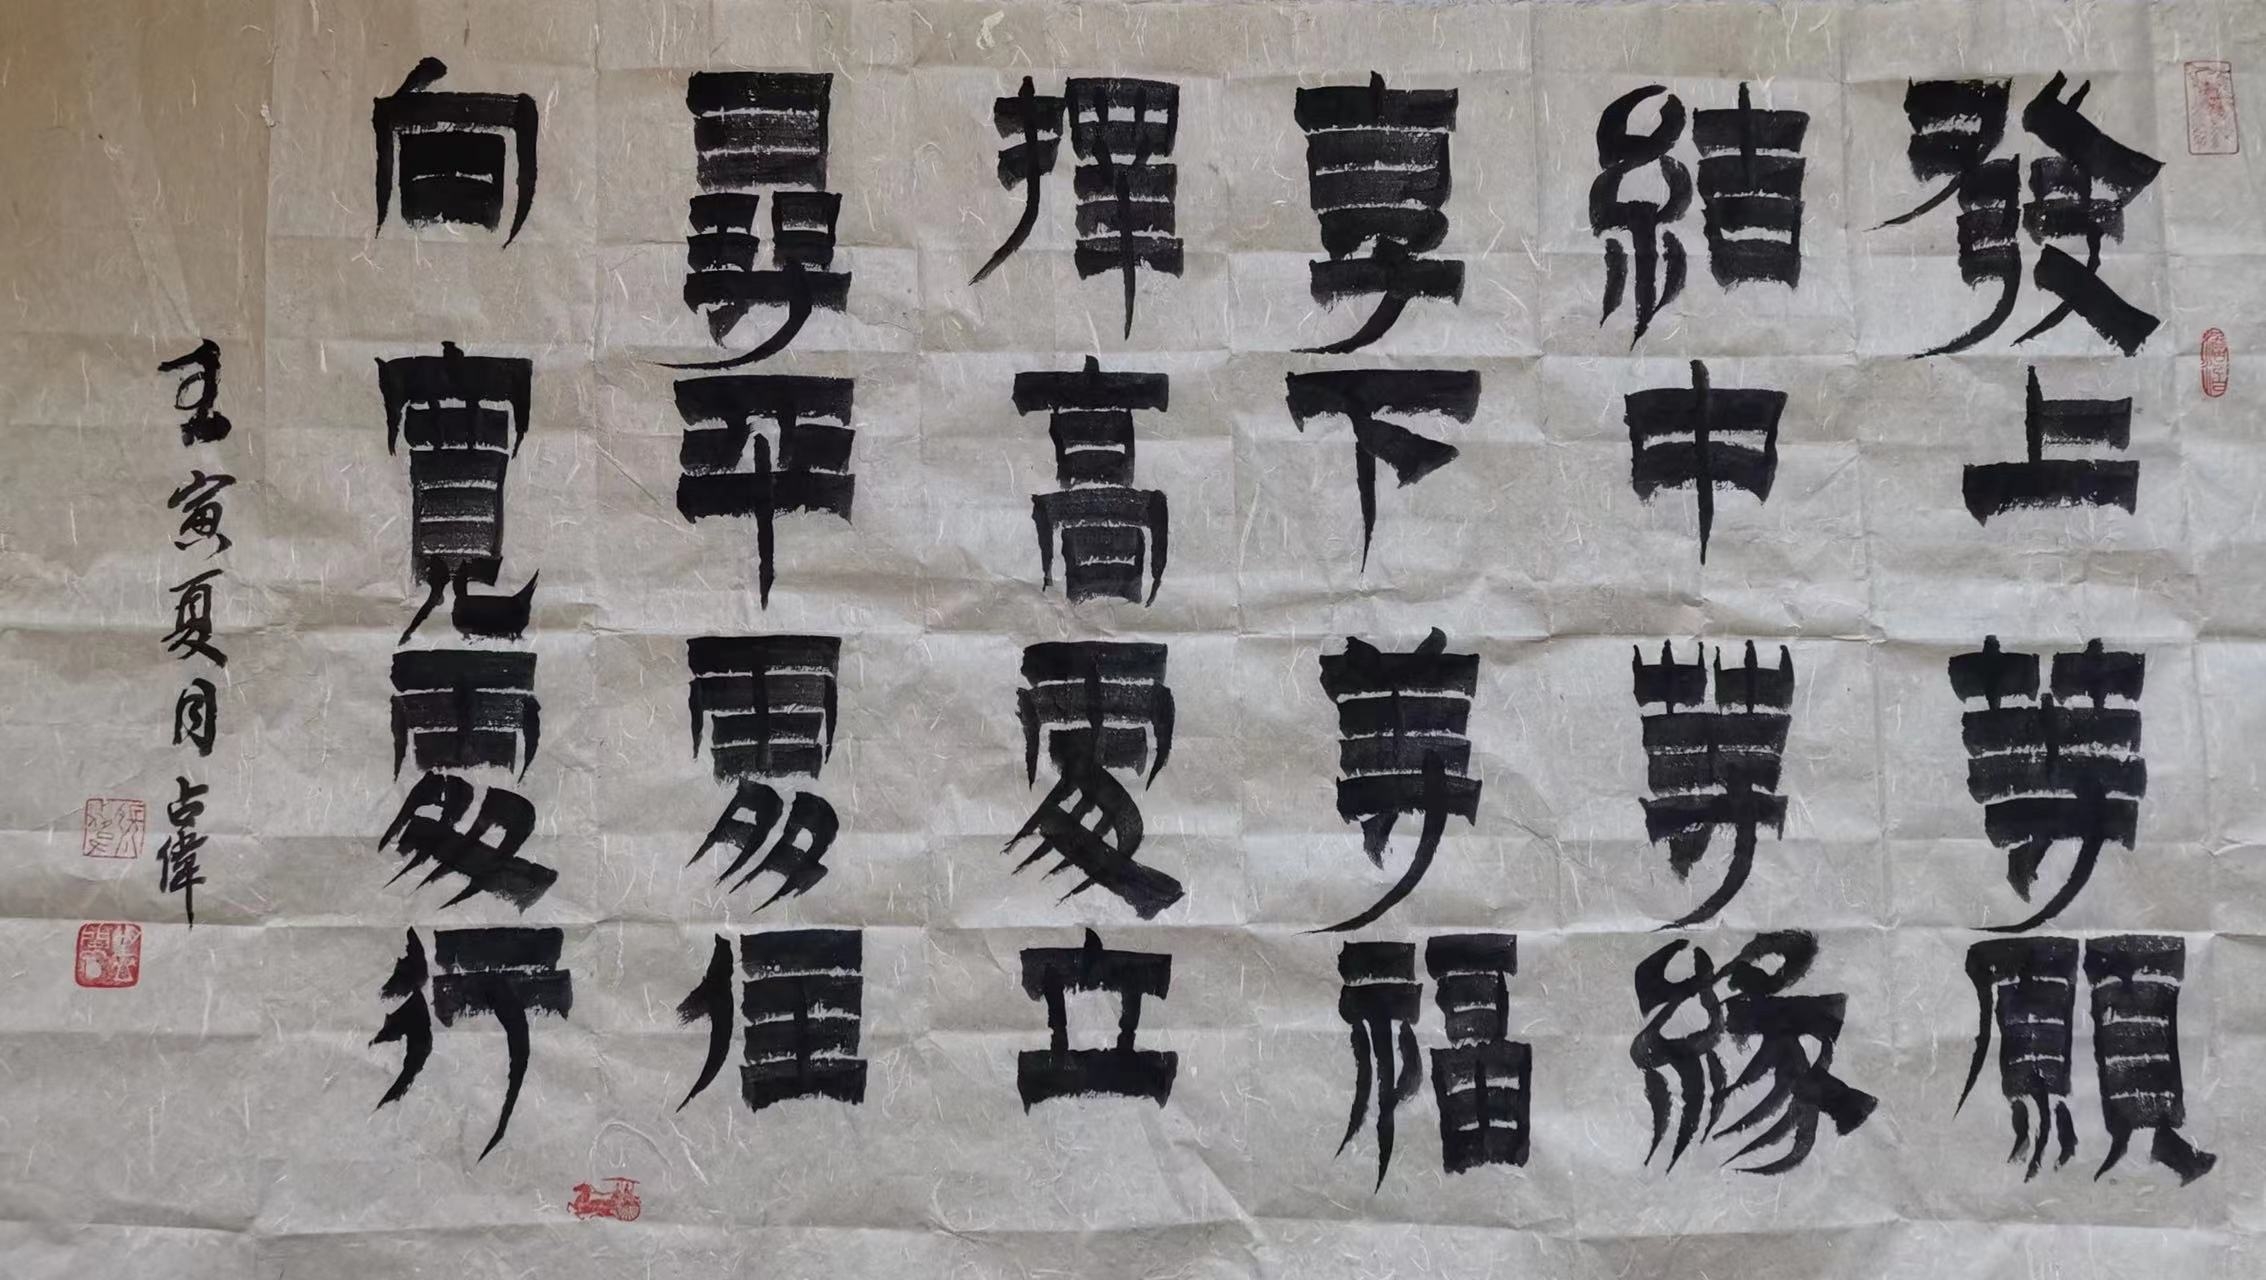 發上等願
結中等緣
享下等福
擇高處立
尋平處住
向寬處行
壬寅夏月占偉